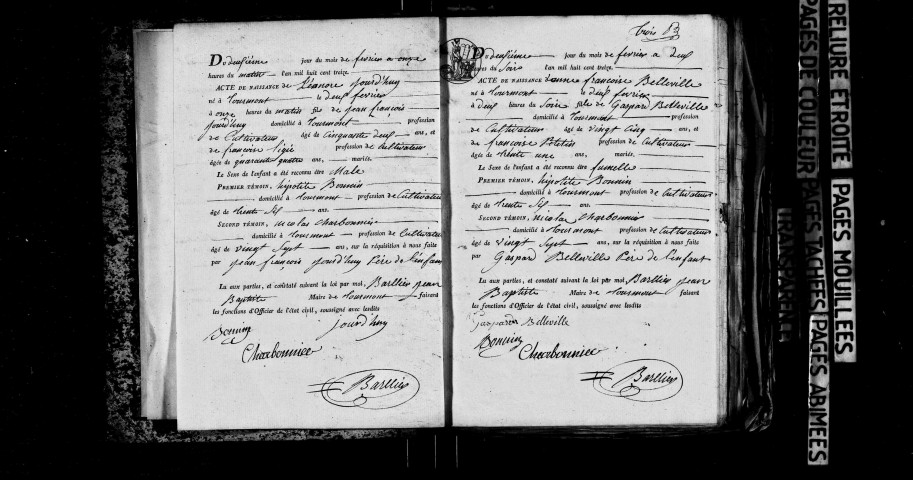 Du deusième jour du mois de fevrier à onze
heures du matin l'an mil huit cent treize.
ACTE DE NAISSANCE de Léanore jourd'huy
né à tourmont le deux fevrier
à onze heures du matin de jean françois
jourd'huy domicilié à tourmont profession
de Cultivateur âgé de Cinquante deux ans, et
de françoise profession de Cultivateur
âgée de quarante quatre ans, mariés.
Le Sexe de l'enfant a été reconnu être Male
PREMIER TÉMOIN, hipolite Bonnin
domicilié à tourmont profession de Cultivateur
âgé de trente ans.
SECOND TÉMOIN, nicolas Charbonnier
domicilié à tourmont profession de Cultivateur
âgé de vingt Sept ans, sur la réquisition à nous faite
par jean françois jourd'huy Père de l'enfant
Lu aux parties, et constaté suivant la loi par moi, Barllier jean
Baptiste Maire de tourmont faisant
les fonctions d'Officier de l'état civil, soussigné avec lesdits
Bonnin jourd'huy
Charbonnier
Barllier
trois
Du deusième jour du mois de fevrier à deux
heures du Soir l'an mil huit cent treize.
ACTE DE NAISSANCE de françoise Belleville
né à tourmont le deux fevrier
à deux heures du Soir de Gaspar Belleville
domicilié à tourmont profession
de Cultivateur âgé de vingt Cinq ans, et
de françoise profession de Cultivateur
âgée de trente une ans, mariés.
Le Sexe de l'enfant a été reconnu être fumelle
PREMIER TÉMOIN, hipolite Bonnin
domicilié à tourmont profession de Cultivateur
âgé de trente ans.
SECOND TÉMOIN, nicolas Charbonnier
domicilié à tourmont profession de Cultivateur
âgé de vingt Sept ans, sur la réquisition à nous faite
par Gaspard Belleville Père de l'enfant
Lu aux parties, et constaté suivant la loi par moi, Barllier jean
Baptiste Maire de tourmont faisant
les fonctions d'Officier de l'état civil, soussigné avec lesdits
Gaspard Belleville
Bonnin
Charbonnier
Barllier
RELIURE ETROITE PAGES MOUILLEES
PAGES DE COULEUR PAGES TACHEES PAGES ABIMEES
TRANSPARENCE